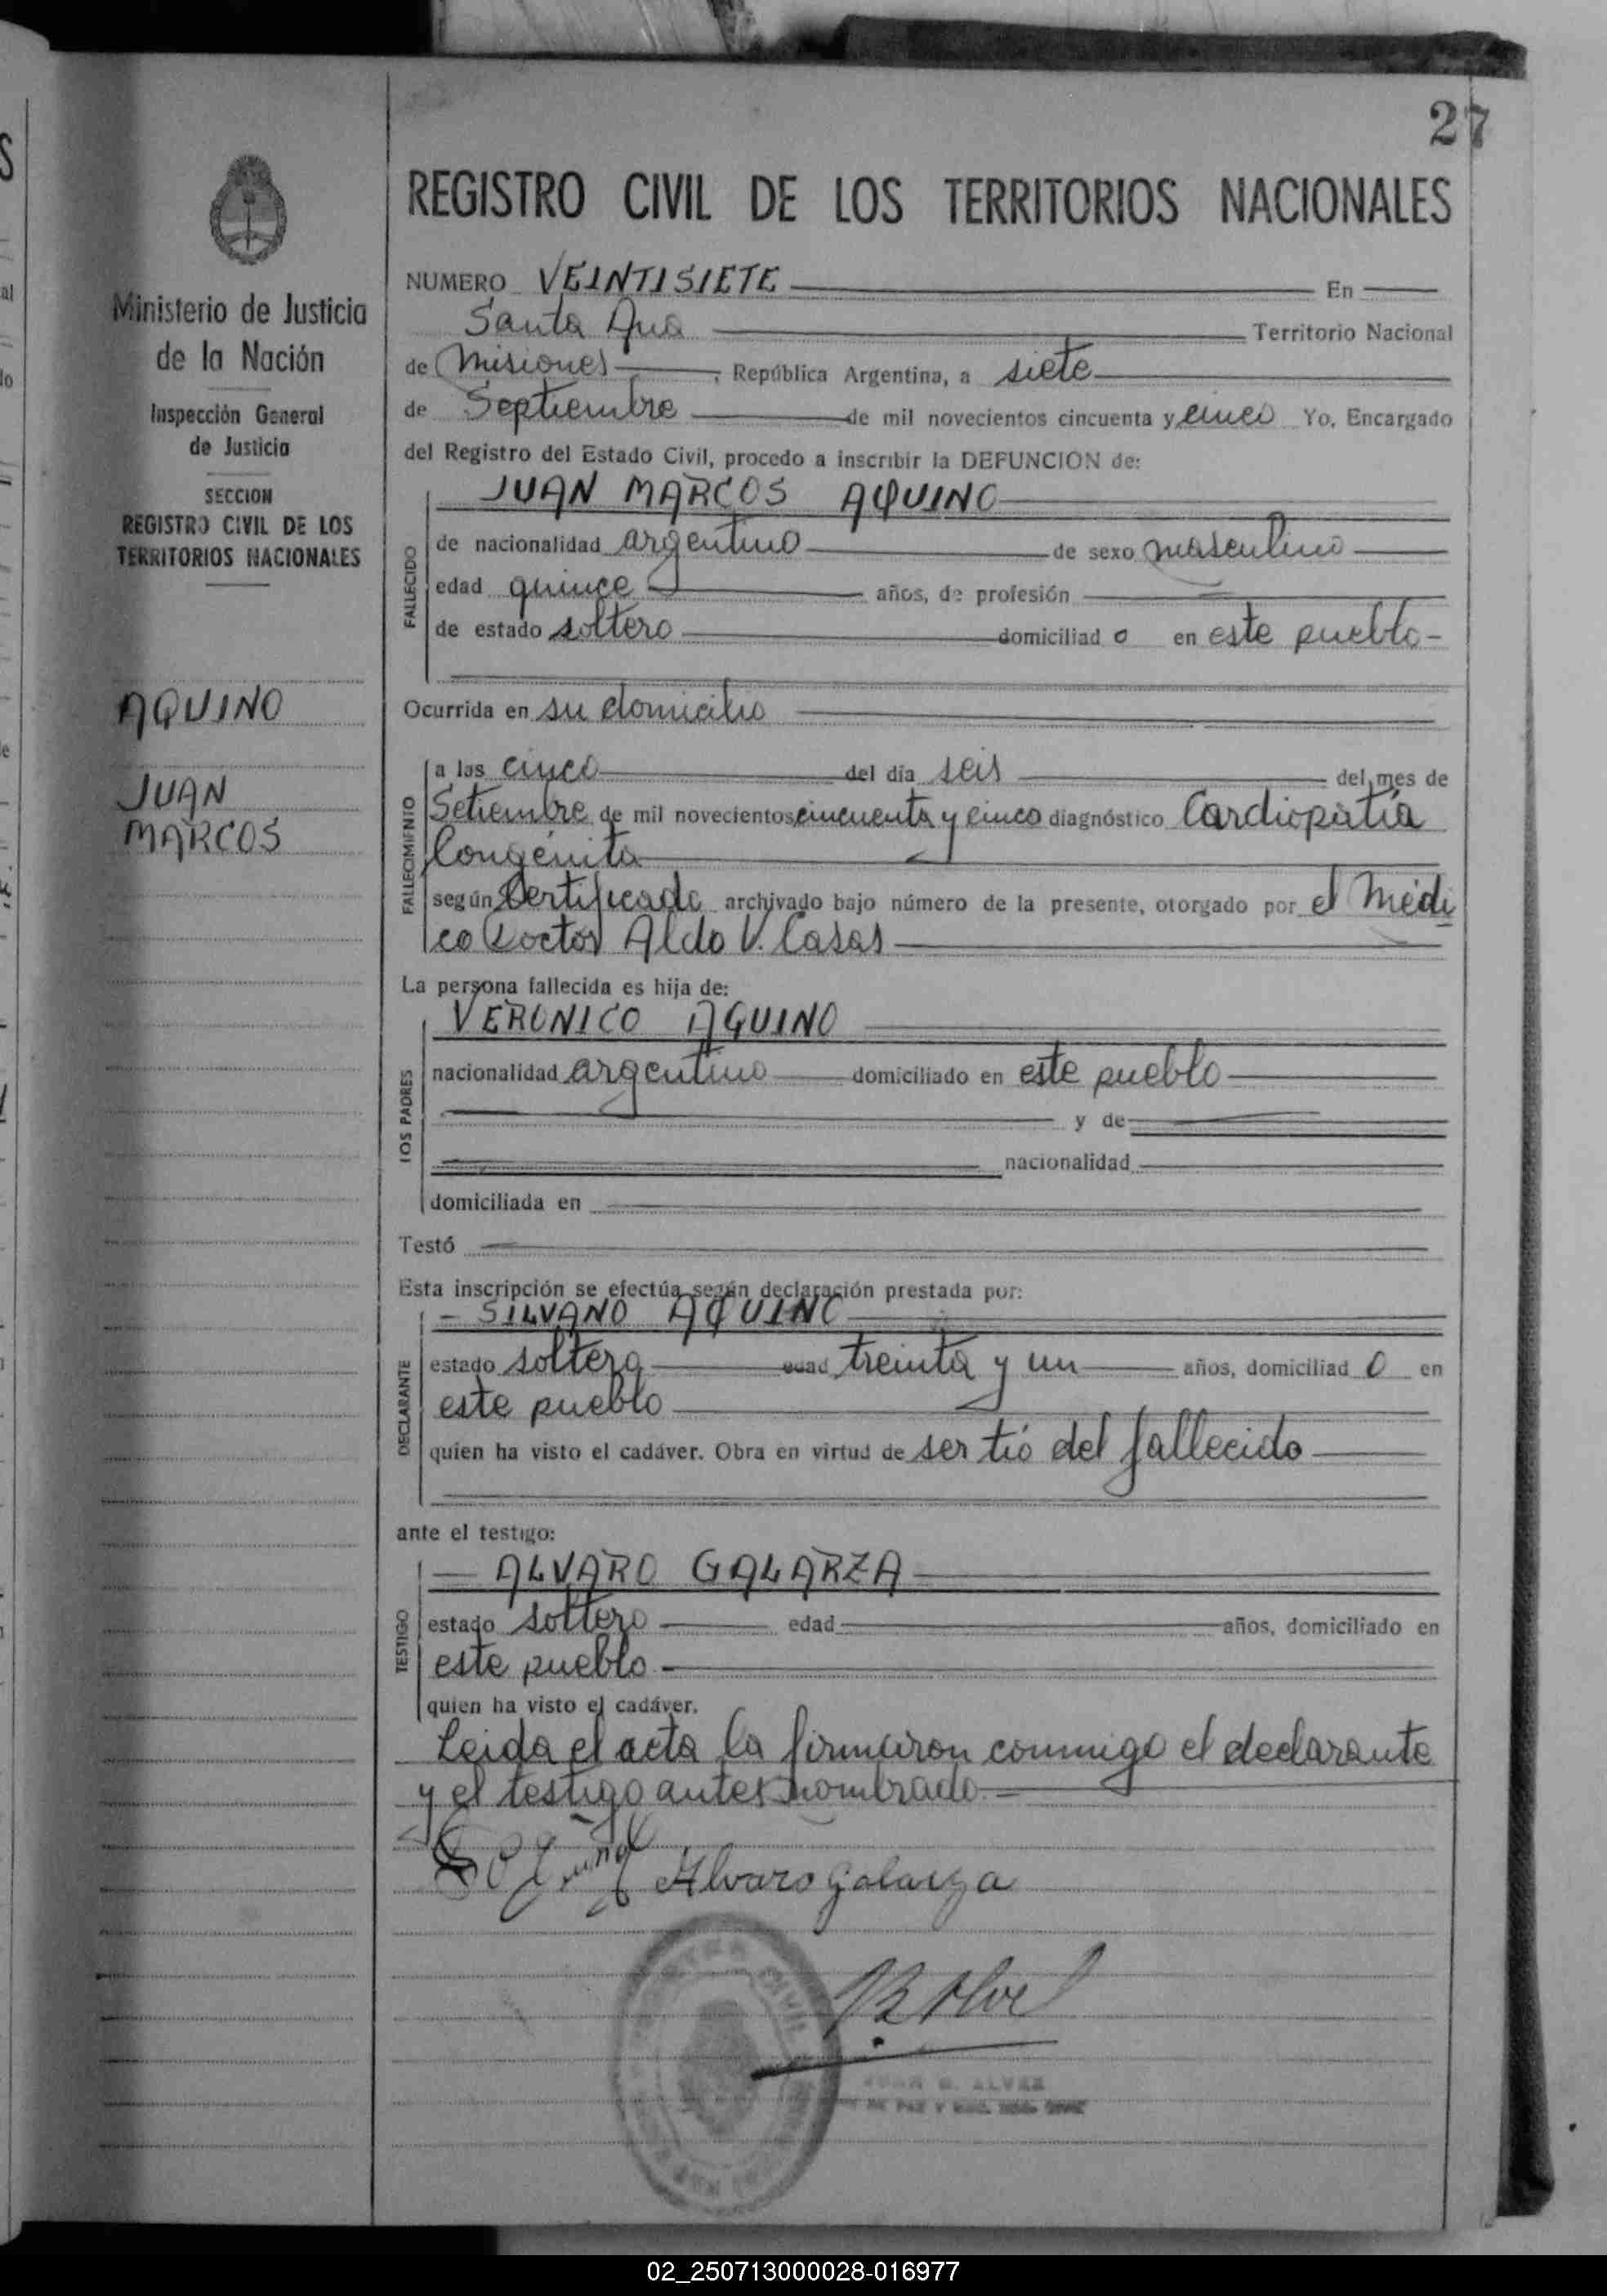 27
Ministerio de Justicia
de la Nación
Inspección General
de Justicia
SECCION
REGISTRO CIVIL DE LOS
TERRITORIOS NACIONALES
AQUINO
JUAN
MARCOS
REGISTRO CIVIL DE LOS TERRITORIOS NACIONALES
NUMERO VEINTISIETE En
Santa Ana Territorio Nacional
de Misiones, República Argentina, a siete
de Septiembre de mil novecientos cincuenta y cinco Yo, Encargado
del Registro del Estado Civil, procedo a inscribir la DEFUNCION de:
JUAN MARCOS AQUINO
FALLECIDO
de nacionalidad argentino de sexo masculino
edad quince años, de profesión
de estado soltero domiciliad o en este pueblo-
Ocurrida en su domicilio
FALLECIMIENTO
a las cinco del día seis del mes de
Setiembre de mil novecientos cincuenta y cinco diagnóstico Cardiopatía
Congénita
según Certificado archivado bajo número de la presente, otorgado por el Médi
co Doctor Aldo V. Casas
La persona fallecida es hija de:
VERONICO AQUINO
LOS PADRES
nacionalidad argentino domiciliado en este pueblo
y de
nacionalidad
domiciliada en
Testó
Esta inscripción se efectúa según declaración prestada por:
- SILVANO AQUINO
DECLARANTE
estado soltero edad treinta y un años, domiciliad o en
este pueblo
quien ha visto el cadáver. Obra en virtud de ser tío del fallecido
ante el testigo:
ALVARO GALARZA
TESTIGO
estado soltero edad años, domiciliado en
este pueblo
quien ha visto el cadáver.
Leida el acta la firmaron conmigo el declarante
y el testigo antes nombrado.-
Alvaro Galarza
ALVEZ
02_250713000028-016977